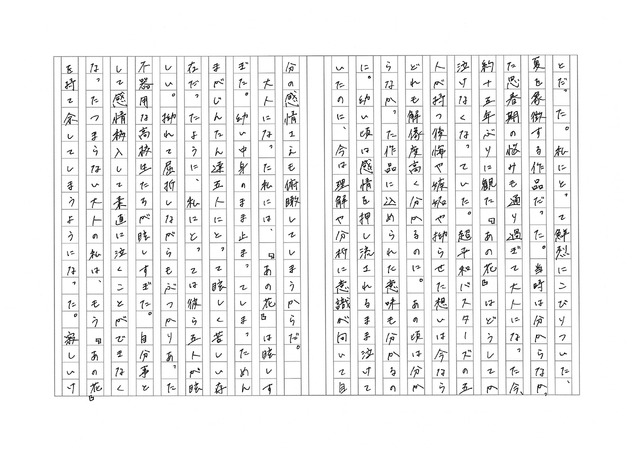 とだった。私にとって鮮烈にこびりついた、
夏を象徴する作品だった。当時は分からなかっ
た思春期の悩みも通り過ぎて大人になった今、
約十五年ぶりに観た『あの花』はどうしてか
泣けなくなっていた。超平和バスターズの五
人が持つ後悔や嫉妬や拗らせた想いは今なら
どれも解像度高く分かるのに、あの頃は分か
らなかった作品に込められた意味も分かるの
に。幼い頃は感情を押し流されるまま泣けて
いたのに、今は理解や分析に意識が向いて自
分の感情さえも俯瞰してしまうからだ。
大人になった私には、『あの花』は眩しす
ぎた。幼い中身のまま止まってしまっためん
まがじんたん達五人にとって眩しく苦しい存
在だったように、私にとっては彼ら五人が眩
しい。拗れて屈折しながらもぶつかりあった
不器用な高校生たちが眩しすぎた。自分事と
して感情移入して素直に泣くことができなく
なったつまらない大人の私は、もう『あの花』
を持て余してしまうようになった。寂しいけ